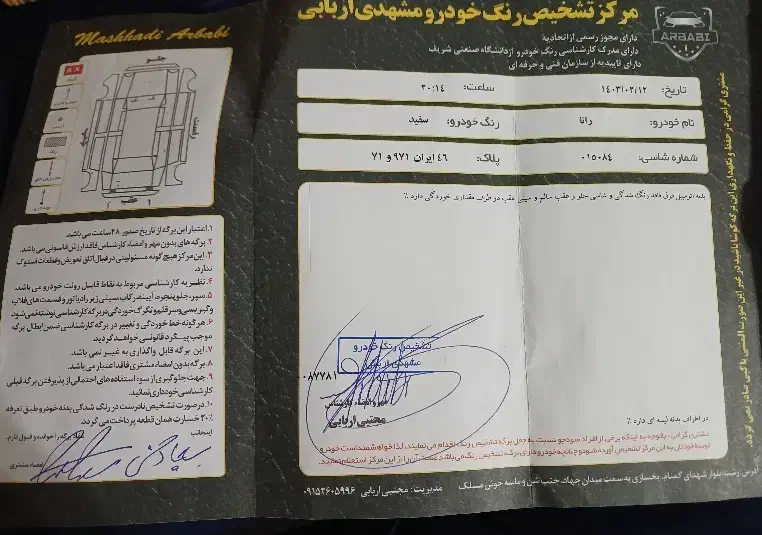 مرکز تشخیص رنگ خودرو مشهدی اربابی
دارای مجوز رسمی از اتحادیه
دارای مدرک کارشناسی رنگ خودرو از دانشگاه صنعتی شریف
دارای تاییدیه از سازمان فنی و حرفه ای
ARBABI
تاریخ: ۱۴۰۳/۰۲/۱۲ ساعت: ۲۰:۱۴
نام خودرو: رانا رنگ خودرو: سفید
شماره شاسی: ۰۱۵۰۸۴ پلاک: ۴۶ ایران ۹۷۱ و ۷۱
بدنه اتومبیل فوق فاقد رنگ شدگی و شاسی جلو و عقب سالم و سینی عقب دو طرف مقداری خوردگی دارد ٪
تشخیص رنگ خودرو
مشهدی اربابی
۰۸۷۷۸۱
مهر و امضاء کارشناس
مجتبی اربابی
در اطراف بدنه لیسه ای دارد ٪
مشتری گرامی، باتوجه به اینکه برخی از افراد سودجو نسبت به جعل برگه تشخیص رنگ اقدام می نمایند، لذا خواهشمند است خودرو
توسط خودتان به این مرکز تشخیص آورده شود و چنانچه خودرو دارای برگه تشخیص رنگ می باشد صحت آن را از این مرکز استعلام نمایید.
آدرس: رشت، بلوار شهدای گمنام، یخسازی به سمت میدان جهاد، جنب شن و ماسه خوش مسلک
مدیریت: مجتبی اربابی ۰۹۱۵۲۶۰۵۹۹۶
Mashhadi Arbabi
جلو
راست
عقب
۱. اعتبار این برگه از تاریخ صدور ۴۸ ساعت می باشد.
۲. برگه های بدون مهر و امضاء کارشناس فاقد ارزش قانونی می باشد.
۳. این مرکز هیچ گونه مسئولیتی در قبال اتاق تعویض و قطعات استوک
ندارد.
۴. نظریه کارشناسی مربوط به نقاط قابل روئت خودرو می باشد.
۵. سپر، جلو پنجره، آیینه، رکاب، سینی زیر رادیاتور و قسمت های قلاب
۶. هر گونه خط خوردگی و تغییر در برگه کارشناسی ضمن ابطال برگه
موجب پیگرد قانونی خواهد گردید.
۷. این برگه قابل واگذاری به غیر نمی باشد.
۸. برگه بدون امضاء مشتری فاقد اعتبار می باشد.
۹. جهت جلوگیری از سوء استفاده های احتمالی از پذیرفتن برگه قبلی
کارشناسی خودداری نمائید.
۱۰. در صورت تشخیص نادرست در رنگ شدگی بدنه خودرو طبق تعرفه
۳۰٪ خسارت همان قطعه پرداخت می گردد.
اینجانب
برگه را خوانده و قبول دارم.
امضاء مشتری